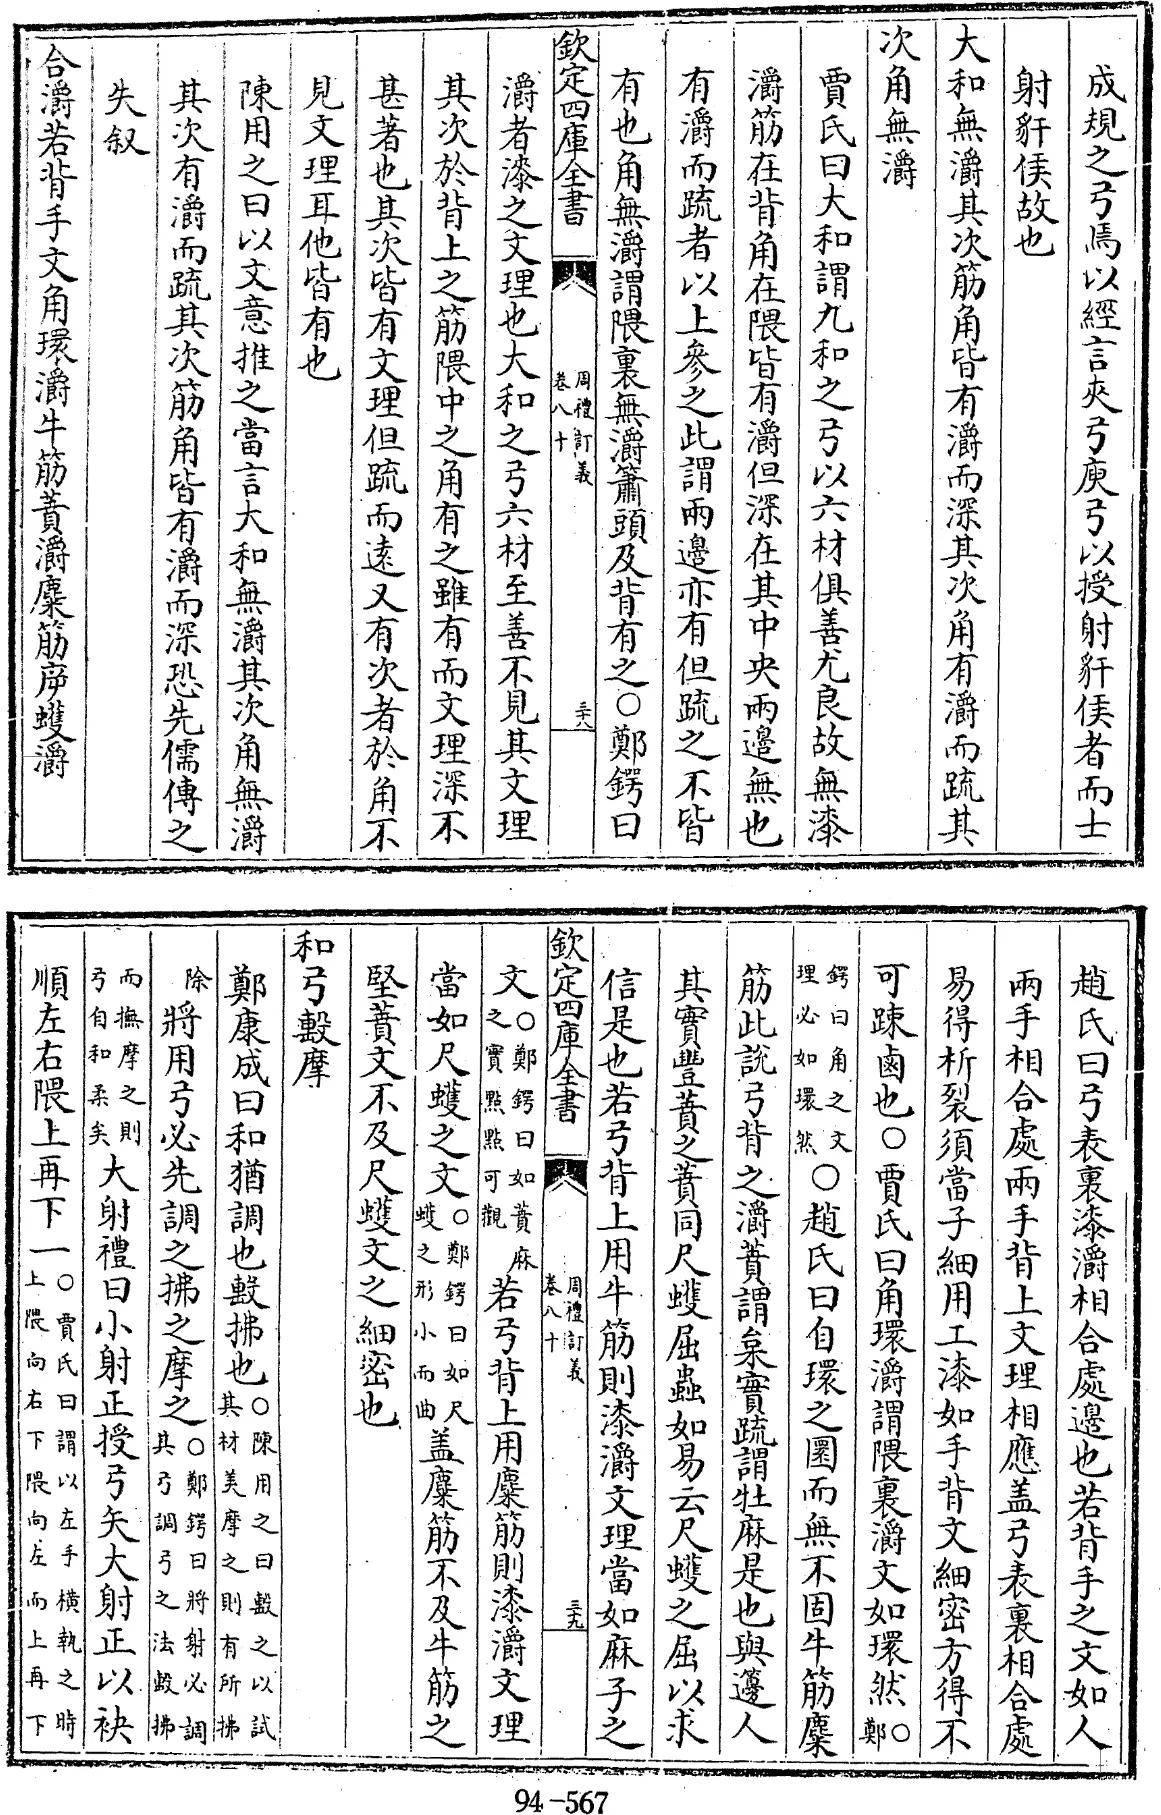 成規之弓焉以經言夾弓庾弓以授射豻侯者而士
射豻侯故也
大和無灂其次筋角皆有灂而深其次角有灂而疏其
次角無灂
賈氏曰大和謂九和之弓以六材俱善尤良故無漆
灂筋在背角在隈皆有灂但深在其中央兩邊無也
有灂而疏者以上參之此謂兩邊亦有但疏之不皆
有也角無灂謂隈裏無灂簫頭及背有之○鄭鍔曰
欽定四庫全書
周禮訂義
卷八十
三十八
灂者漆之文理也大和之弓六材至善不見其文理
其次於背上之筋隈中之角有之雖有而文理深不
甚著也其次皆有文理但疏而遠又有次者於角不
見文理耳他皆有也
陳用之曰以文意推之當言大和無灂其次角無灂
其次有灂而疏其次筋角皆有灂而深恐先儒傳之
失叙
合灂若背手文角環灂牛筋蕡灂麋筋斥蠖灂
趙氏曰弓表裏漆灂相合處邊也若背手之文如人
兩手相合處兩手背上文理相應盖弓表裏相合處
易得析裂須當子細用工漆如手背文細密方得不
可踈鹵也○賈氏曰角環灂謂隈裏灂文如環然○鄭
鍔曰角之文
理必如環然
○趙氏曰自環之圜而無不固牛筋麋
筋此說弓背之灂蕡謂枲實疏謂牡麻是也與籩人
其實豐蕡之蕡同尺蠖屈蟲如易云尺蠖之屈以求
信是也若弓背上用牛筋則漆灂文理當如麻子之
欽定四庫全書
周禮訂義
卷八十
三十九
文○鄭鍔曰如蕡麻
之實㸃㸃可觀
若弓背上用麋筋則漆灂文理
當如尺蠖之文○鄭鍔曰如尺
蠖之形小而曲
盖麋筋不及牛筋之
堅蕡文不及尺蠖文之細密也
和弓毄摩
鄭康成曰和猶調也毄拂也○陳用之曰毄之以試
其材美摩之則有所拂
除
將用弓必先調之拂之摩之○鄭鍔曰將射必調
其弓調弓之法毄拂
而撫摩之則
弓自和柔矣
大射禮曰小射正授弓矢大射正以袂
順左右隈上再下一○賈氏曰謂以左手橫執之時
上隈向右下隈向左而上再下
94-567